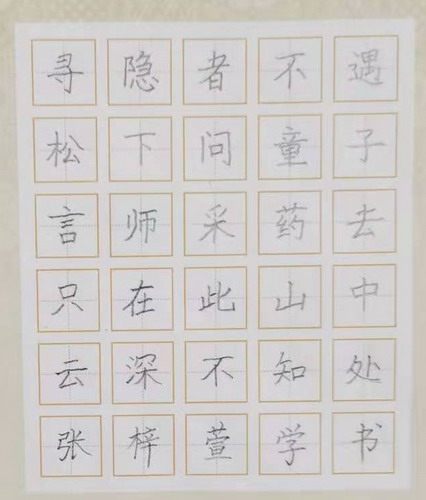 寻隐者不遇
松下问童子
言师采药去
只在此山中
云深不知处
张梓萱学书